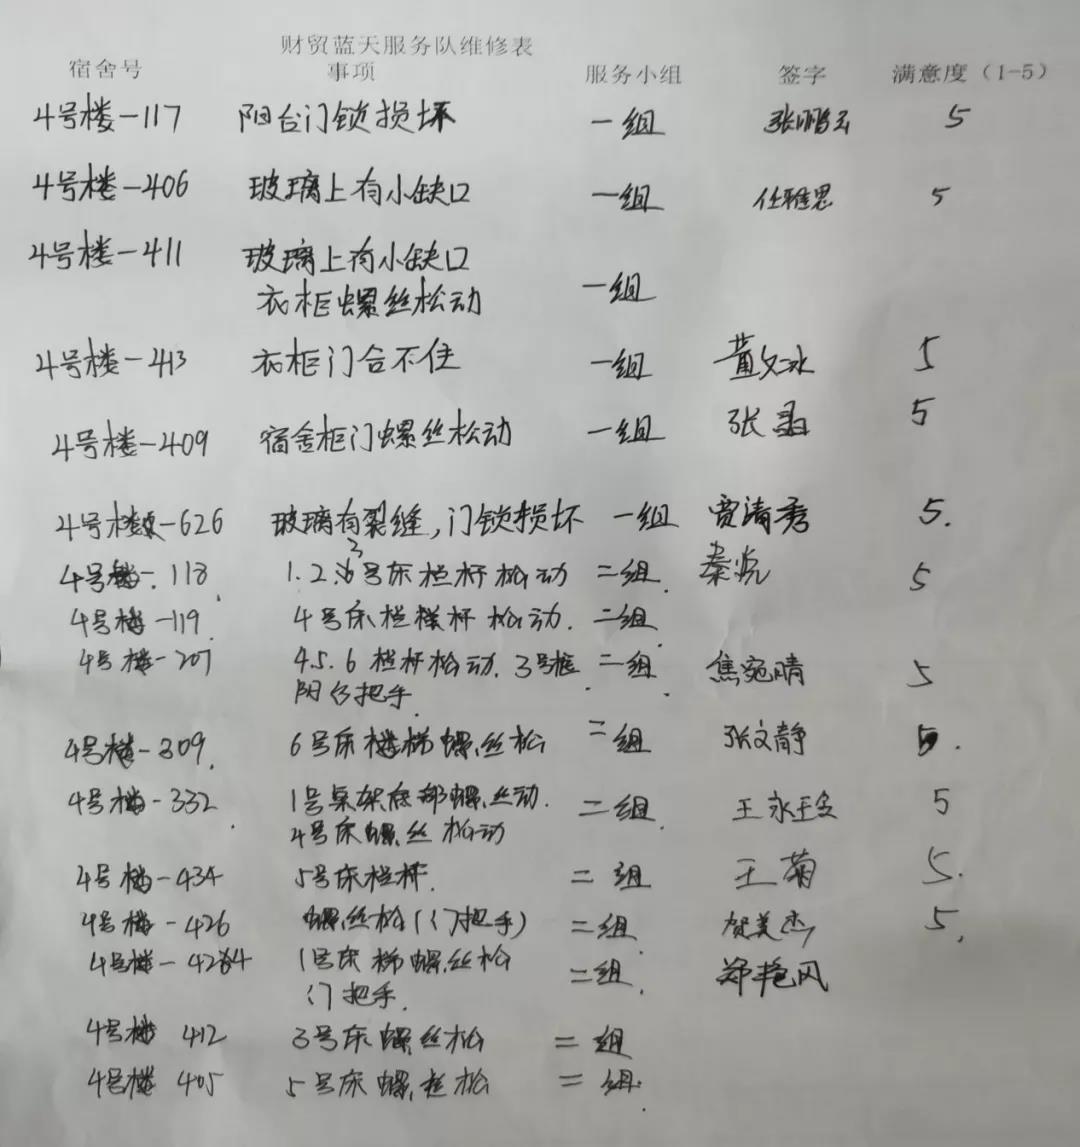 财贸蓝天服务队维修表
宿舍号 事项 服务小组 签字 满意度（1-5）
4号楼-117 阳台门锁损坏 一组 张鹏云 5
4号楼-406 玻璃上有小缺口 一组 任雅思 5
4号楼-411 玻璃上有小缺口 一组
衣柜螺丝松动
4号楼-413 衣柜门合不住 一组 5
4号楼-409 宿舍柜门螺丝松动 一组 张晶 5
4号楼-626 玻璃有裂缝,门锁损坏 一组 贾清秀 5.
4号楼-118 1.2.3号床栏杆松动 二组. 秦 5
4号楼-119. 4号床栏杆松动. 二组
4号楼-207 4.5.6栏杆松动.3号柜 二组 焦宛晴 5
阳台把手.
4号楼-309. 6号床楼梯螺丝松 二组 张文静 5.
4号楼-332. 1号桌架底部螺丝动. 二组. 王永 5
4号床螺丝松动
4号楼-434 5号床栏杆. 二组 王菊 5.
4号楼-426 螺丝松(门把手) 二组. 贺美杰 5.
4号楼-424 1号床梯螺丝松 二组. 郑艳风
门把手.
4号楼 412 3号床螺丝松 二组
4号楼 405 5号床螺丝松 二组.